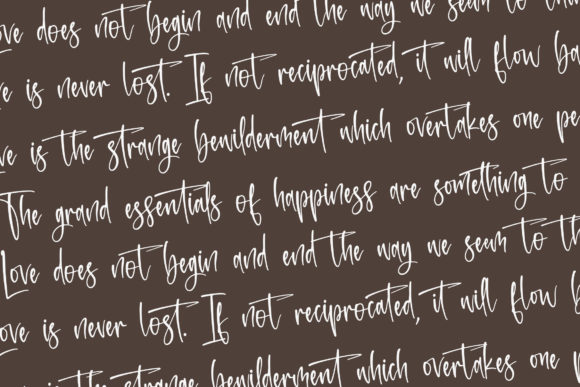 Love does not begin and end the way we seem to
is never lost. If not reciprocated, it will flow
is the strange bewilderment which overtakes one
The grand essentials of happiness are something to
Love does not begin and end the way we seem to
Love is never lost. If not reciprocated, it will flow
is the strange bewilderment which overtakes one